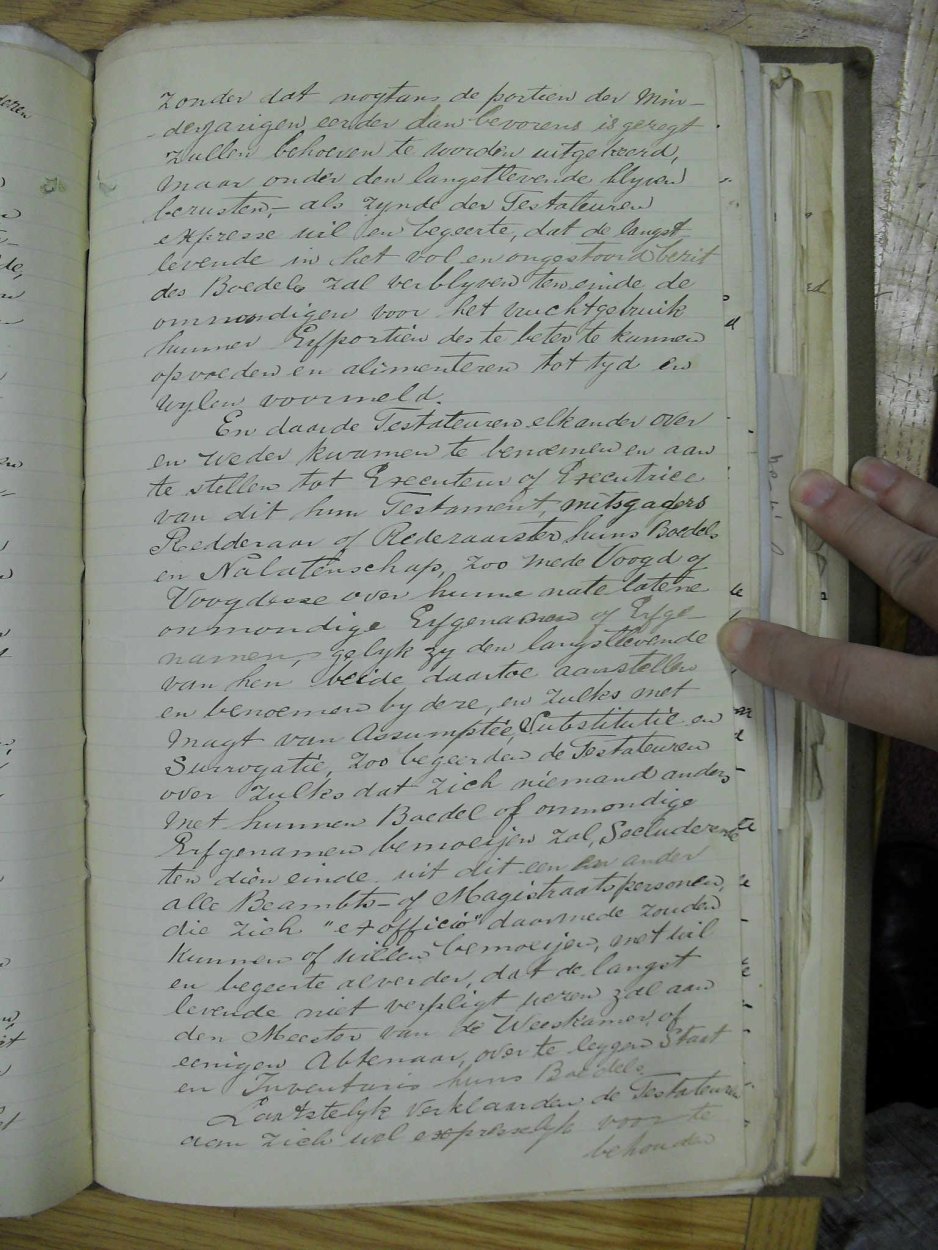 zonder dat nogtans de portien der Min-
-derjarigen eerder dan bevorens is gezegt
zullen behoeven te worden uitgekeerd,
maar onder den langstlevende blyven
berusten, - als zynde der Testateuren
expresse wil en begeerte, dat de langst
levende in het vol en ongestoord bezit
des Boedels zal verblyven ten einde de
onmondigen voor het vruchtgebruik
hunner Erfportien des te beter te kunnen
opvoeden en alimenteren tot tyd en
wylen voormeld.
En daar de Testateuren elkander over
en weder kwamen te benoemen en aan
te stellen tot Executeur of Executrice
van dit hun Testament, mitsgaders
Redderaar of Rederaarster huns Boedels
en Nalatenschap, zoo mede Voogd of
Voogdesse over hunne nate latene
onmondige Erfgenamen of Erfge-
namen, gelyk zy den langstlevende
van hen beide daartoe aanstellen
en benoemen by deze, en zulks met
magt van Assumptie, Substitutie en
Surrogatie, zoo begeerden de Testateuren
over zulks dat zich niemand anders
met hunnen Boedel of onmondige
Erfgenamen bemoeijen zal, Secluderende
ten dien einde uit dit een en ander
alle Beambts- of Magistraatspersonen,
die zich "ex officio" daarmede zouden
kunnen of willen bemoeijen, met wil
en begeerte al verder, dat de langst
levende niet verpligt wezen zal aan
den Meester van de Weeskamer, of
eenigen Abtenaar, over te leggen Staat
en Inventaris huns Boedels.
Laatstelyk verklaarden de Testateuren
aan zich wel expresselyk voor te
behouden